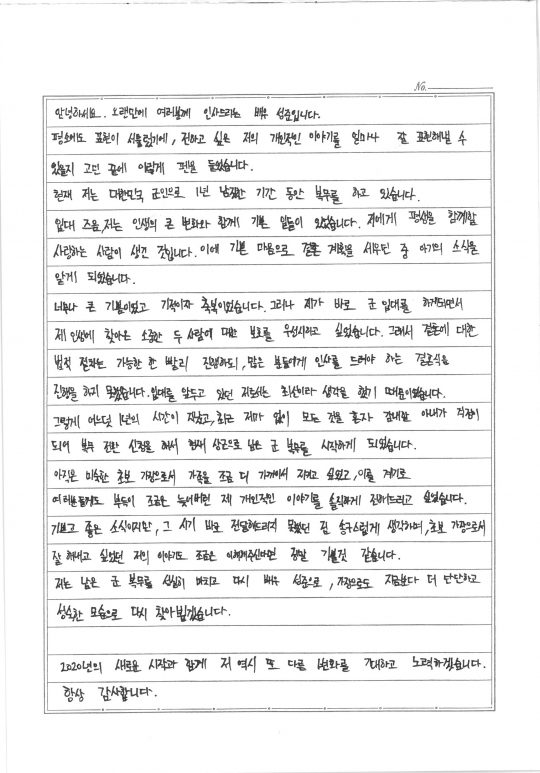 No.
안녕하세요. 오랜만에 여러분께 인사드리는 배우 성준입니다.
평소에도 표현이 서툴렀기에, 전하고 싶은 저의 개인적인 이야기를 얼마나 잘 표현해낼 수
있을지 고민 끝에 이렇게 펜을 들었습니다.
현재 저는 대한민국 군인으로 1년 남짓한 기간 동안 복무를 하고 있습니다.
입대 즈음, 저는 인생의 큰 변화와 함께 기쁜 일들이 있었습니다. 저에게 평생을 함께할
사랑하는 사람이 생긴 것입니다. 이에 기쁜 마음으로 결혼 계획을 세우던 중 아기의 소식을
알게 되었습니다.
너무나 큰 기쁨이었고 기적이자 축복이었습니다. 그러나 제가 바로 군 입대를 하게되면서
제 인생에 찾아온 소중한 두 사람에 대한 보호를 우선시하고 싶었습니다. 그래서 결혼에 대한
법적 절차는 가능한 한 빨리 진행하되, 많은 분들에게 인사를 드려야 하는 결혼식은
진행을 하지 못했습니다. 입대를 앞두고 있던 저로서는 최선이라 생각을 했기 때문이었습니다.
그렇게 어느덧 1년의 시간이 지났고, 최근 제가 없이 모든 것을 혼자 감내할 아내가 걱정이
되어 복무 전환 신청을 해서 현재 상근으로 남은 군 복무를 시작하게 되었습니다.
아직은 미숙한 초보 가장으로서 가족을 조금 더 가까이서 지키고 싶었고, 이를 계기로
여러분들께도 부득이 조금은 늦어버린 제 개인적인 이야기를 솔직하게 전해드리고 싶었습니다.
기쁘고 좋은 소식이지만, 그 시기 바로 전달해드리지 못했던 점 송구스럽게 생각하며, 초보 가장으로서
잘 해내고 싶었던 저의 이야기도 조금은 이해해주신다면 정말 기쁠것 같습니다.
저는 남은 군 복무를 성실히 마치고 다시 배우 성준으로, 가장으로도 지금보다 더 단단하고
성숙한 모습으로 다시 찾아 뵙겠습니다.
2020년의 새로운 시작과 함께 저 역시 또 다른 변화를 기대하고 노력하겠습니다.
항상 감사합니다.